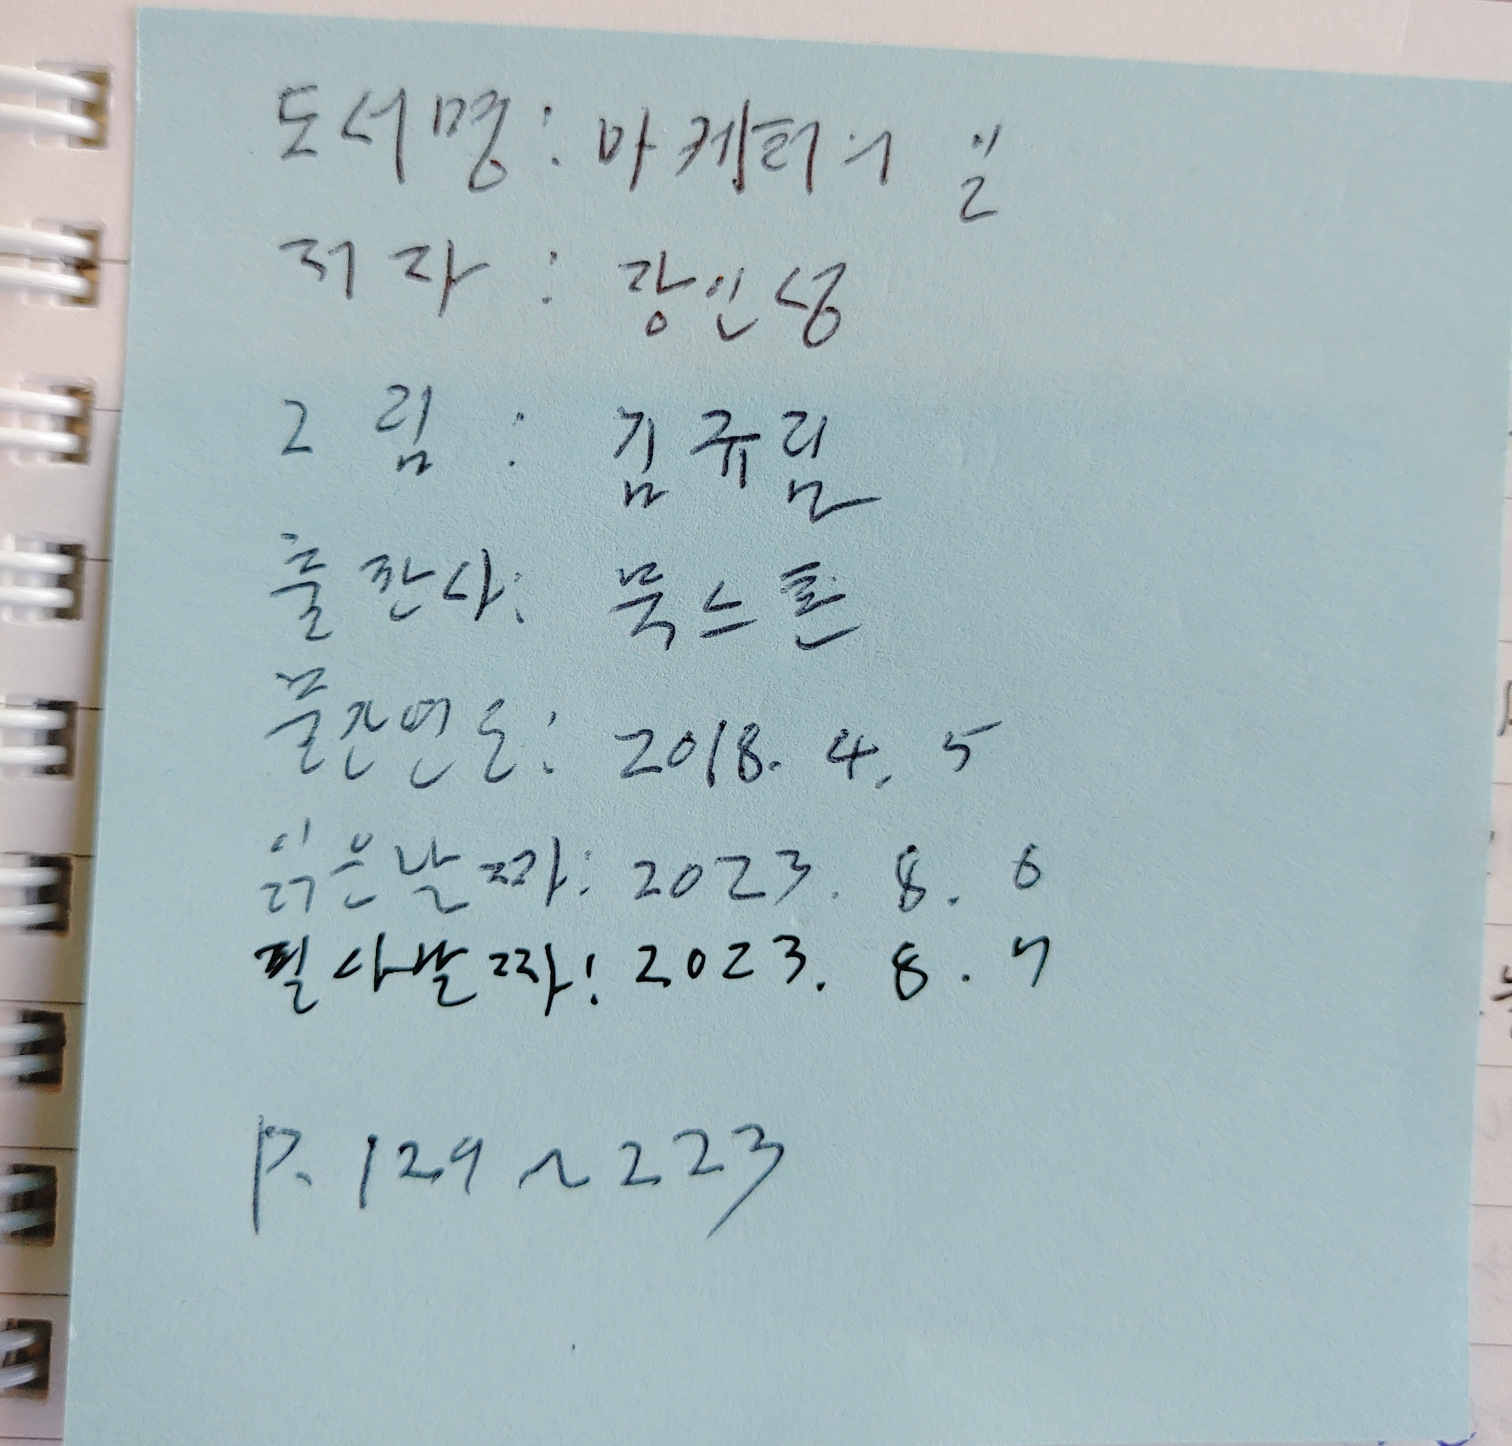 도서명: 마케터의 일
저자 : 장인성
그림 : 김규림
출판사: 북스톤
출간연도: 2018. 4. 5
읽은날짜: 2023. 8. 6
필사날짜: 2023. 8. 7
P. 129~223